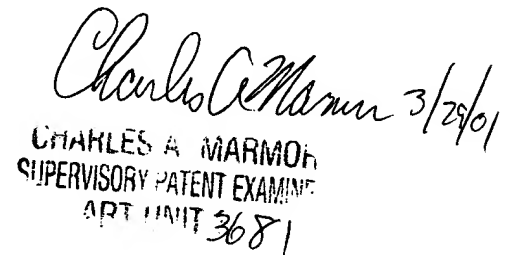 Charles A Marmor 3/29/01
CHARLES A MARMOR
SUPERVISORY PATENT EXAMINER
ART UNIT 3681